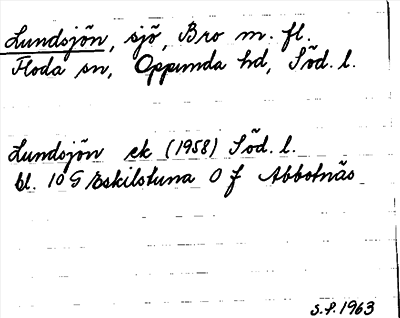 Lundsjön, sjö, Bro m. fl.
Floda sn, Oppunda hd, Söd. l.
Lundsjön ek (1958) Söd. l.
bl. 10 G Eskilstuna 0 f Abbotnäs
S.P. 1963